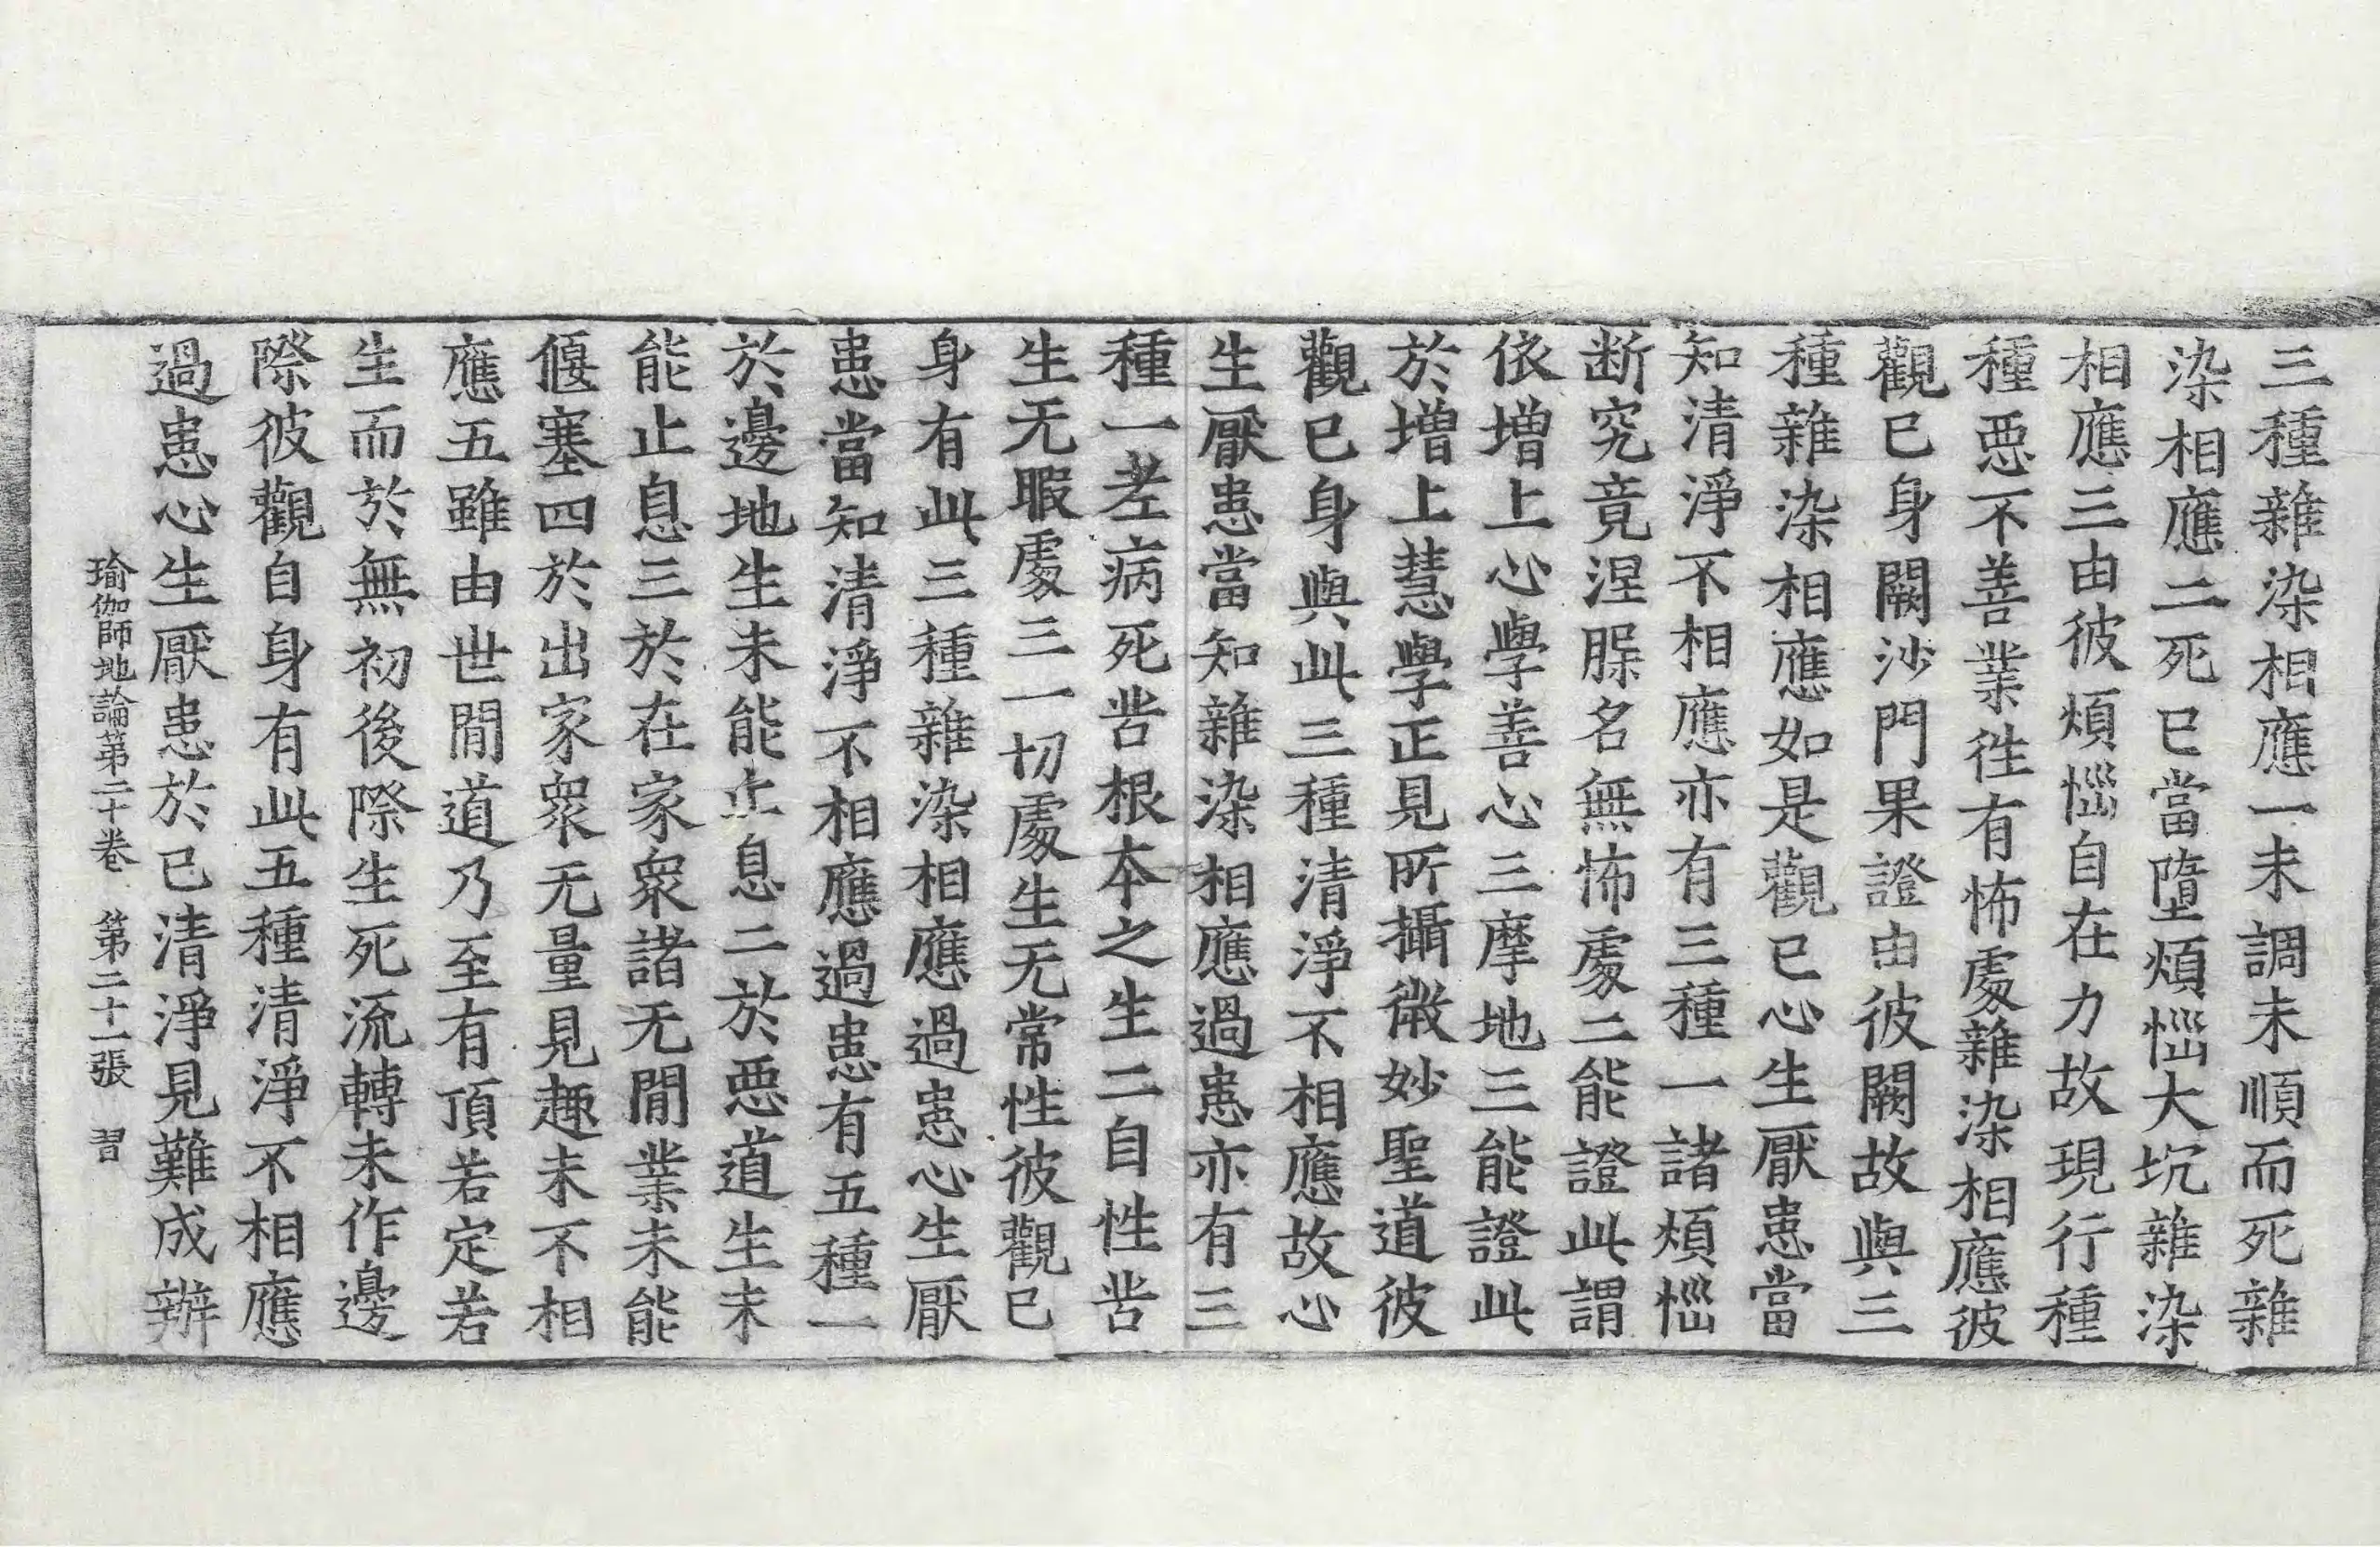 三種雜染相應一未調未順而死雜
染相應二死已當墮煩惱大坑雜染
相應三由彼煩惱自在力故現行種
種惡不善業徃有怖處雜染相應彼
觀已身闕沙門果證由彼闕故與三
種雜染相應如是觀已心生厭患當
知清淨不相應亦有三種一諸煩惱
断究竟涅槃名無怖處二能證此謂
依增上心學善心三摩地三能證此
於增上慧學正見所攝微妙聖道彼
觀已身與此三種清淨不相應故心
生厭患當知雜染相應過患亦有三
種一老病死苦根本之生二自性苦
生无暇處三一切處生无常性彼觀已
身有此三種雜染相應過患心生厭
患當知清淨不相應過患有五種一
於邊地生未能止息二於惡道生未
能止息三於在家衆諸无閒業未能
偃塞四於出家衆无量見趣未不相
應五雖由世閒道乃至有頂若定若
生而於無初後際生死流轉未作邊
際彼觀自身有此五種清淨不相應
過患心生厭患於已清淨見難成辦
瑜伽師地論第二十卷 第二十一張 習